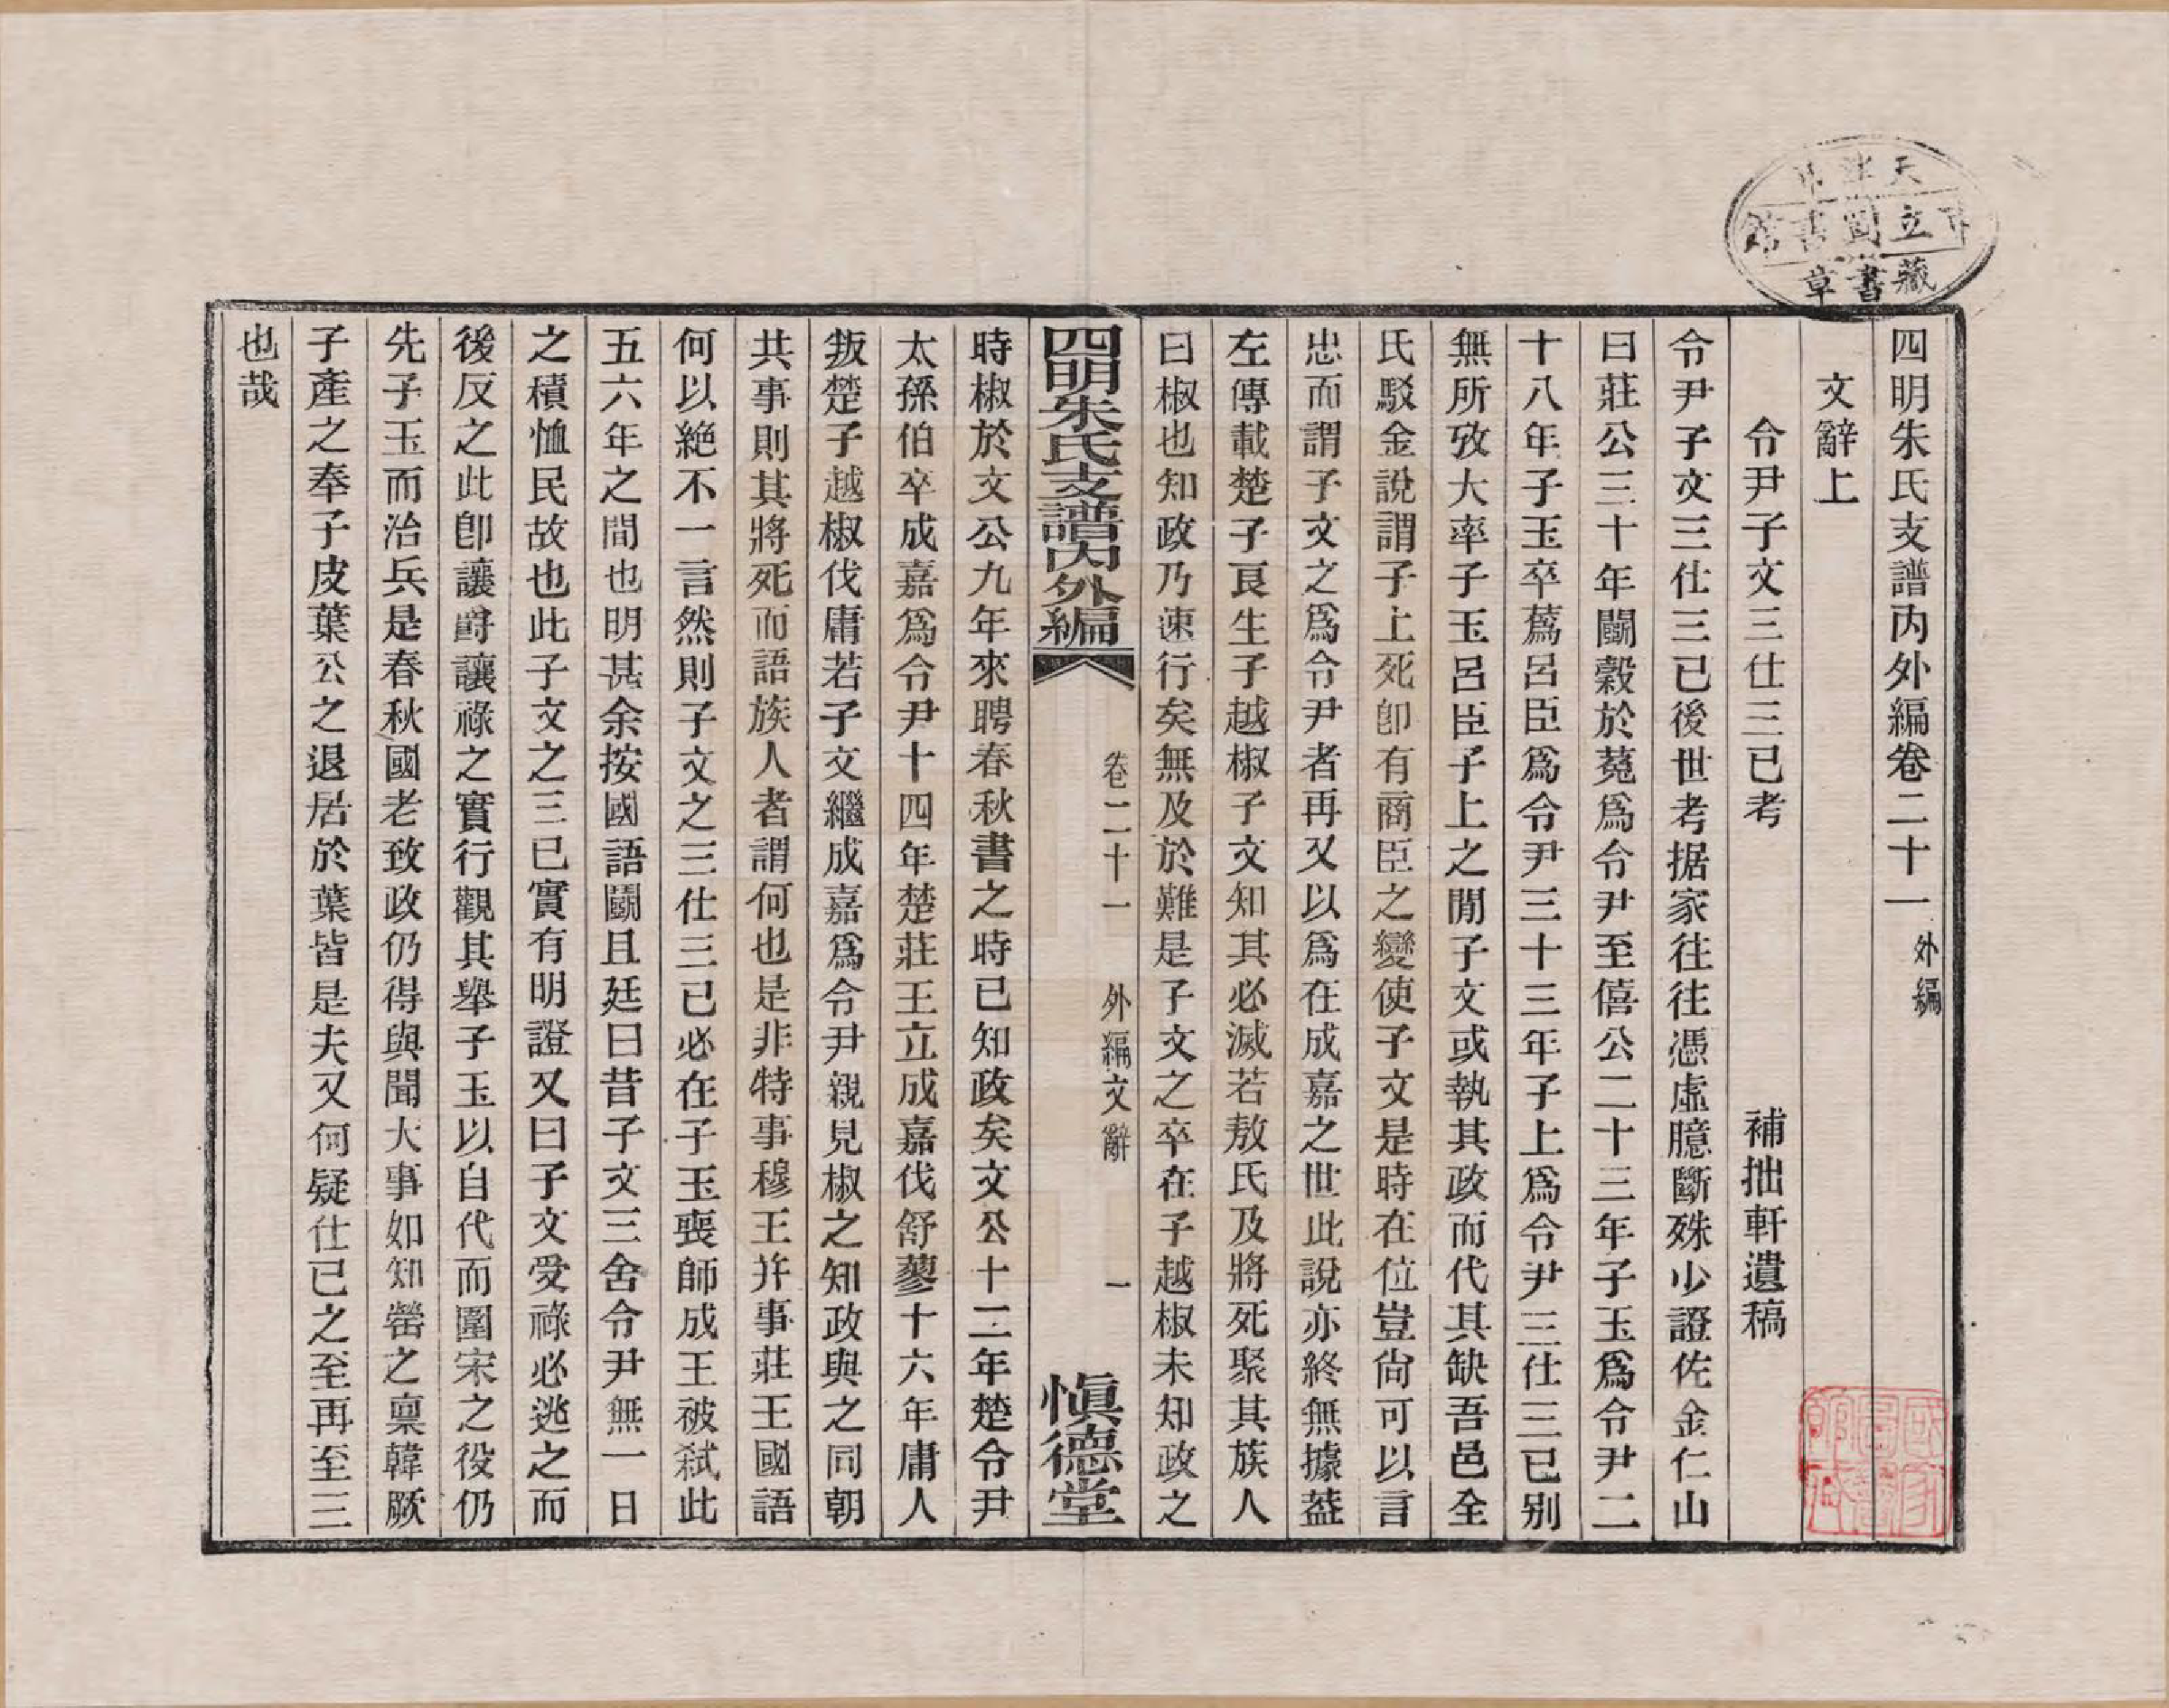 四明朱氏支譜內外編卷二十一 外編
文辭上
令尹子文三仕三已考 補拙軒遺稿
令尹子文三仕三已後世考据家往往憑虛臆斷殊少證佐金仁山
曰莊公三十年鬬穀於菟爲令尹至僖公二十三年子玉爲令尹二
十八年子玉卒蔿呂臣爲令尹三十三年子上爲令尹三仕三已别
無所攷大率子玉呂臣子上之閒子文或執其政而代其缺吾邑全
氏駁金說謂子上死卽有商臣之變使子文是時在位豈尙可以言
忠而謂子文之爲令尹者再又以爲在成嘉之世此說亦終無據葢
左傳載楚子良生子越椒子文知其必滅若敖氏及將死聚其族人
曰椒也知政乃速行矣無及於難是子文之卒在子越椒未知政之
四明朱氏支譜內外編 卷二十一 外編文辭 一 愼德堂
時椒於文公九年來聘春秋書之時已知政矣文公十二年楚令尹
太孫伯卒成嘉爲令尹十四年楚莊王立成嘉伐舒蓼十六年庸人
叛楚子越椒伐庸若子文繼成嘉爲令尹親見椒之知政與之同朝
共事則其將死而語族人者謂何也是非特事穆王并事莊王國語
何以絕不一言然則子文之三仕三已必在子玉喪師成王被弒此
五六年之間也明甚余按國語鬬且廷曰昔子文三舍令尹無一日
之積恤民故也此子文之三已實有明證又曰子文受祿必逃之而
後反之此卽讓爵讓祿之實行觀其舉子玉以自代而圍宋之役仍
先子玉而治兵是春秋國老致政仍得與聞大事如知罃之稟韓厥
子產之奉子皮葉公之退居於葉皆是夫又何疑仕已之至再至三
也哉
天津市
市立圖書館
藏書章